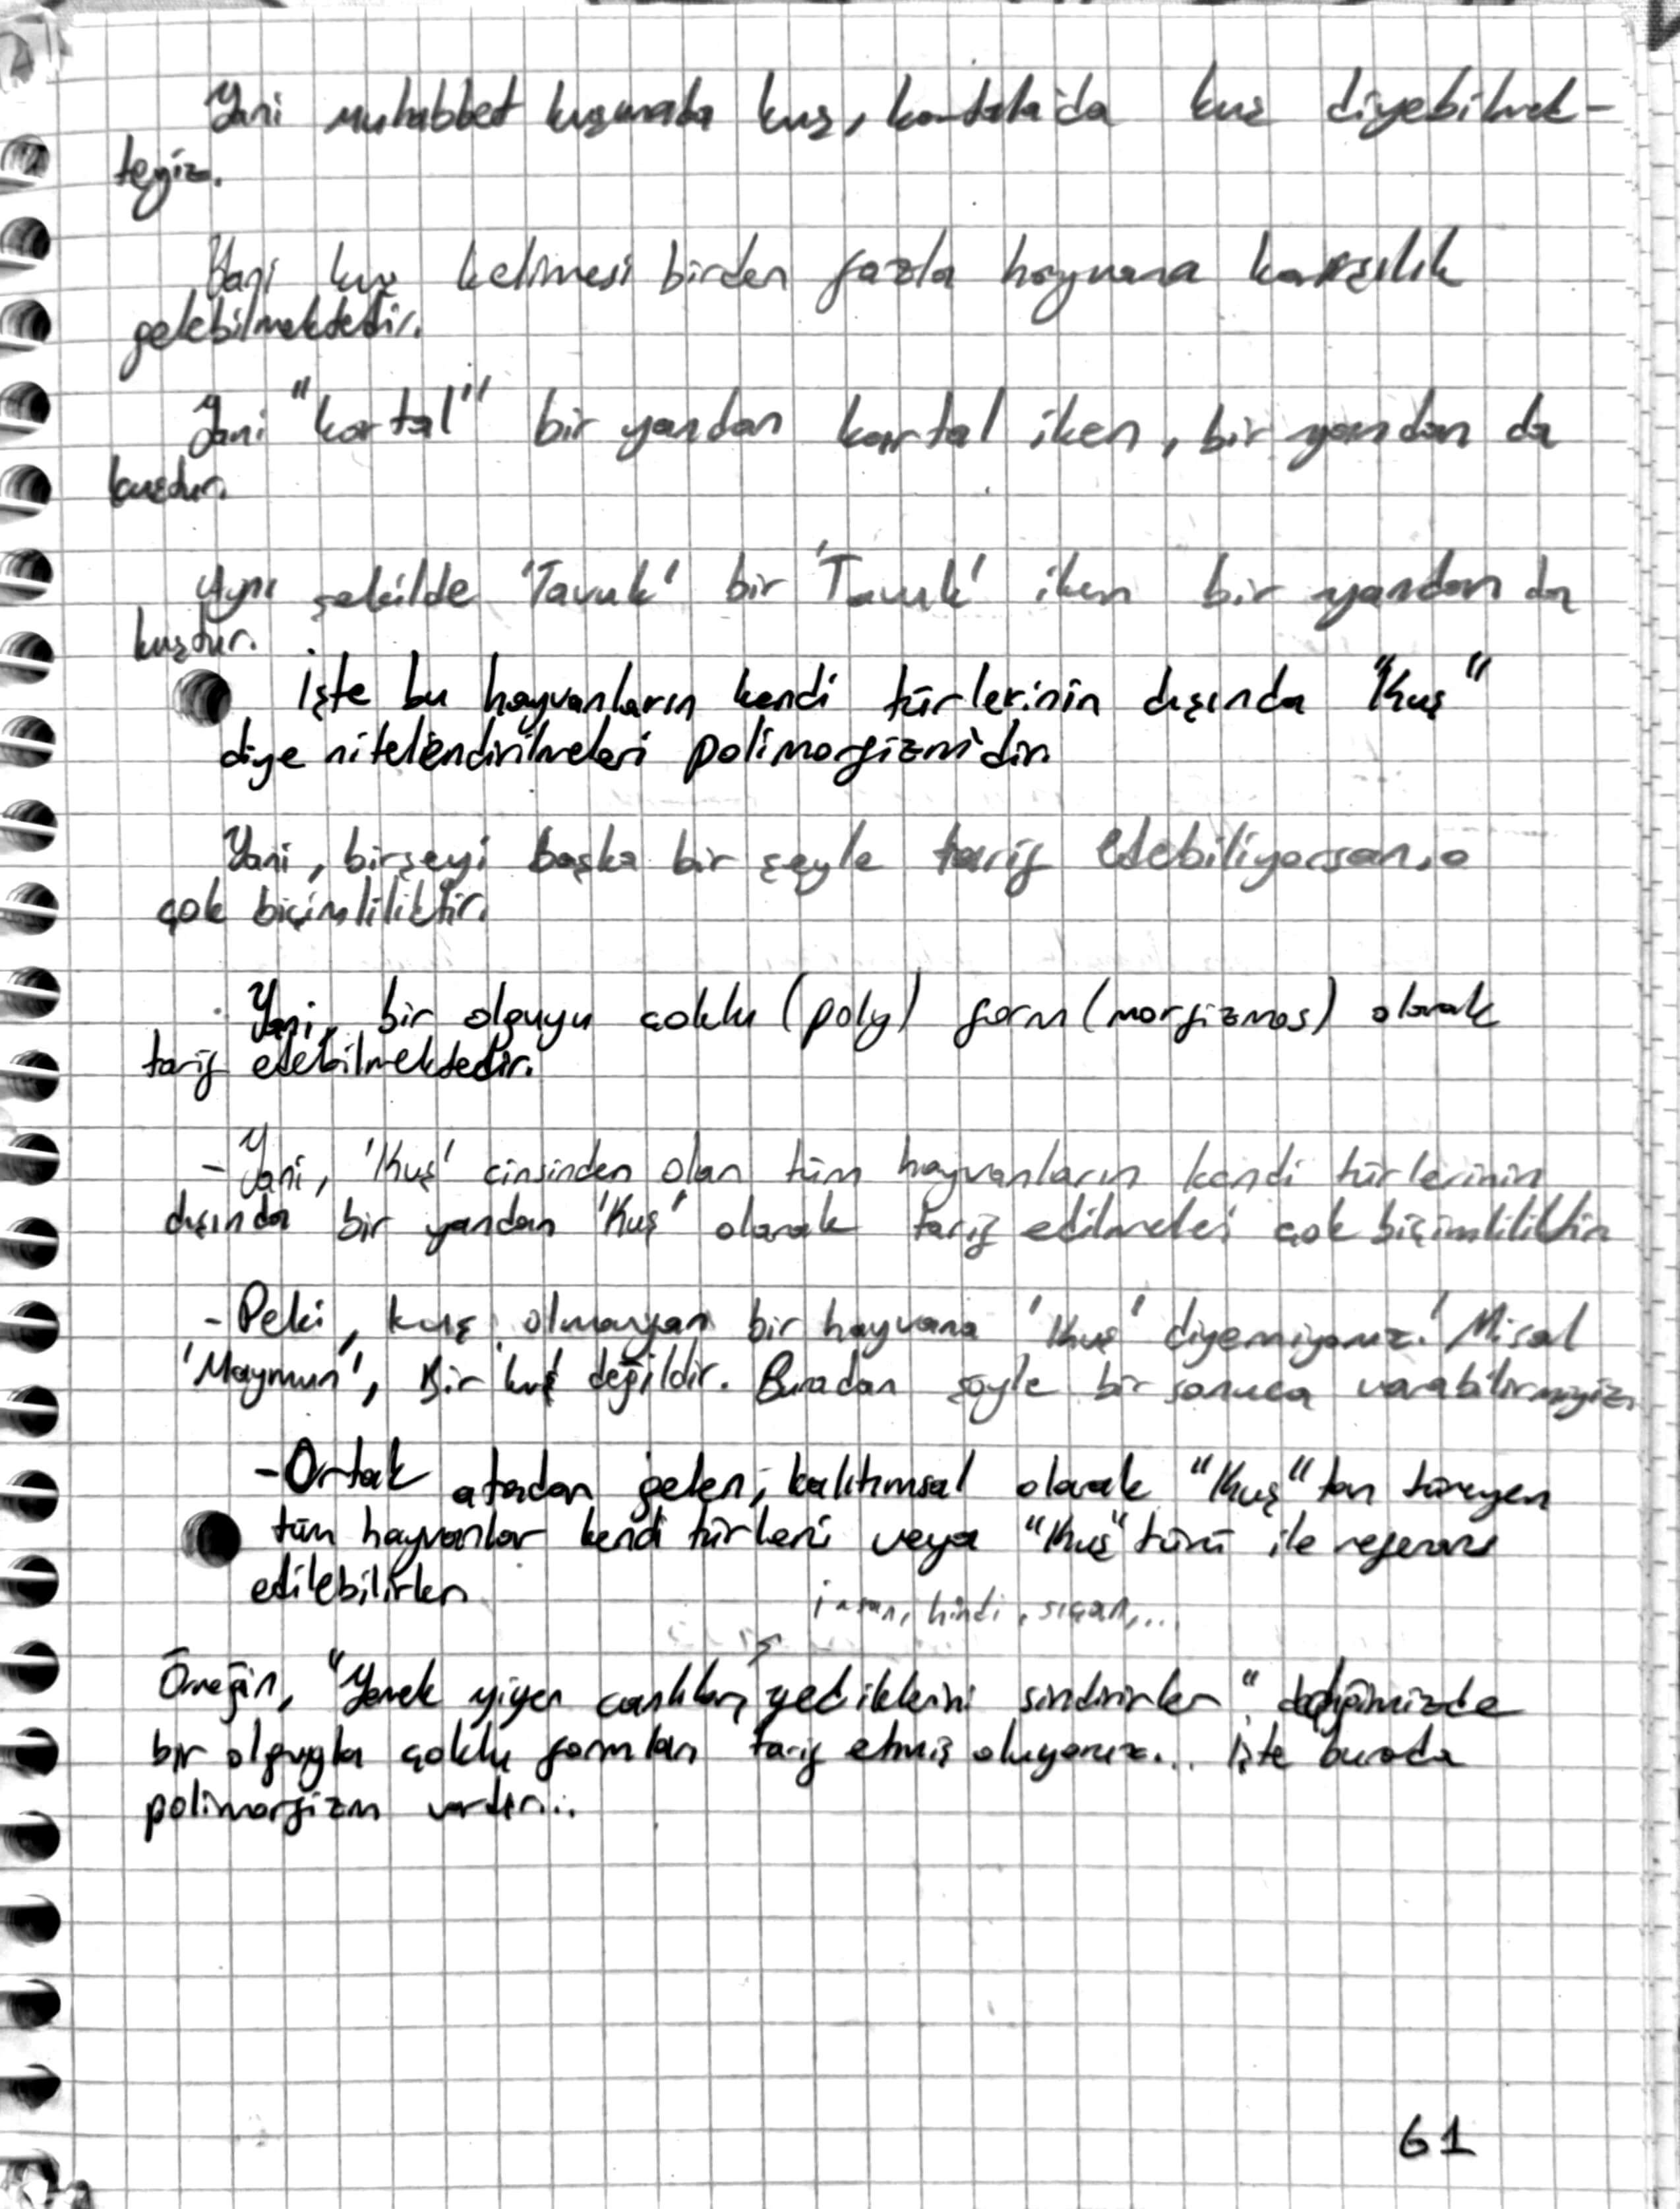 Yani muhabbet kuşunada kuş, kartala'da kuş diyebilmek-
teyiz.
Yani kuş kelimesi birden fazla hayvana karşılık
gelebilmektedir.
Yani "kartal" bir yandan kartal iken, bir yandan da
kuştur.
Aynı şekilde 'Tavuk' bir 'Tavuk' iken bir yandan da
kuştur.
İşte bu hayvanların kendi türlerinin dışında "Kuş"
diye nitelendirilmeleri polimorfizm'dir.
Yani, birşeyi başka bir şeyle tarif edebiliyorsan, o
çok biçimliliktir.
Yani, bir olguyu çoklu (poly) form (morfizmos) olarak
tarif edebilmektedir.
- Yani, 'Kuş' cinsinden olan tüm hayvanların kendi türlerinin
dışında bir yandan 'Kuş' olarak tarif edilmeleri çok biçimliliktir.
- Peki, kuş olmayan bir hayvana 'Kuş' diyemiyoruz! Misal
'Maymun', Bir kuş değildir. Buradan şöyle bir sonuca varabilirmiyiz.
- Ortak atadan gelen, kalıtımsal olarak "Kuş"tan türeyen
tüm hayvanlar kendi türleri veya "Kuş" türü ile referans
edilebilirler.
insan, hindi, sıçan,...
Örneğin, "Yemek yiyen canlılar, yediklerini sindirirler" dediğimizde
bir olguyla çoklu formları tarif etmiş oluyoruz... İşte burada
polimorfizm vardır...
61